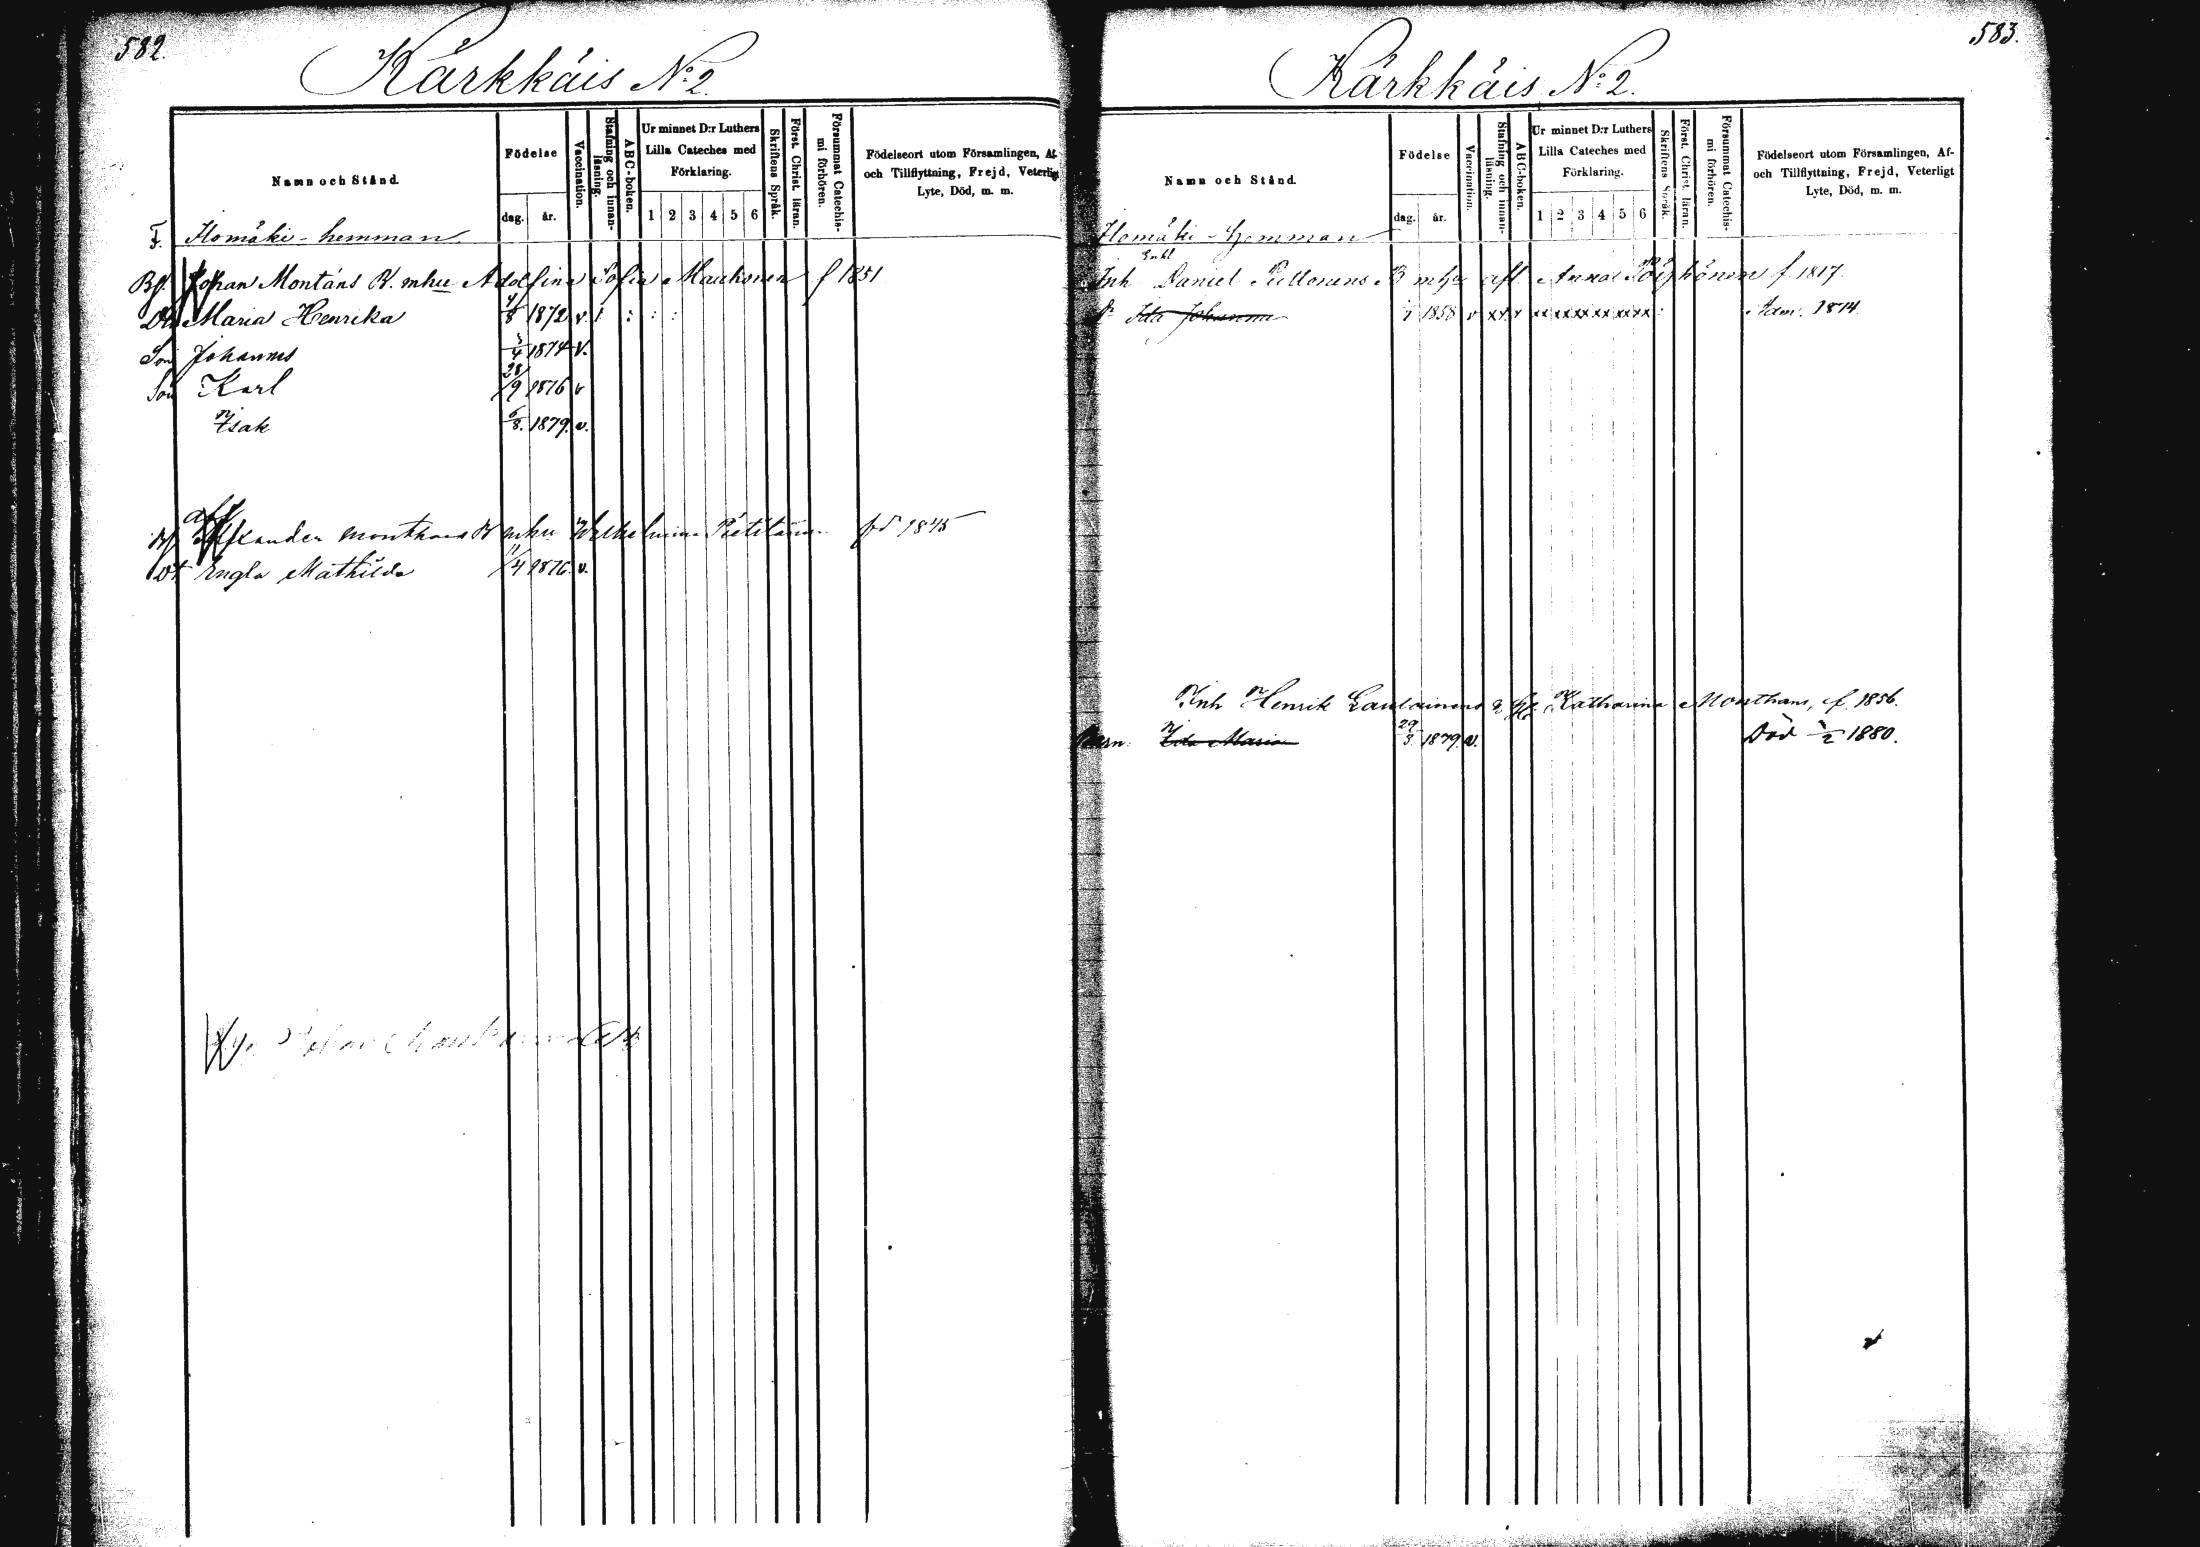 582.
Kärkkäis No 2.
Namn och Stånd.
Födelse
dag. år.
Vaccination.
Stafning och innan-
läsning.
ABC-boken.
Ur minnet D:r Luthers
Lilla Cateches med
Förklaring.
1 2 3 4 5 6
Skriftens Språk.
Först. Christ. läran.
Försummat Catechis-
mi förhören.
Födelseort utom Församlingen, Af-
och Tillflyttning, Frejd, Veterligt
Lyte, Död, m. m.
Ilomäki-hemman.
Johan Montáns B. mhu Adolfina Sofia Maukonen f 1851
Dtr Maria Henrika 4/8 1872 v.
Son Johannes 1874 v.
Son Karl 28/9 1876 v
Isak 6/8. 1879. v.
Alexander Monthans B mhu Wilhelmina fd 1845
Dt Engla Mathilda 11/4 1876. v.
583.
Kärkkäis No 2.
Namn och Stånd.
Födelse
dag. år.
Vaccination.
Stafning och innan-
läsning.
ABC-boken.
Ur minnet D:r Luthers
Lilla Cateches med
Förklaring.
1 2 3 4 5 6
Skriftens Språk.
Först. Christ. läran.
Försummat Catechis-
mi förhören.
Födelseort utom Församlingen, Af-
och Tillflyttning, Frejd, Veterligt
Lyte, Död, m. m.
Ilomäki-hemman
Inh Daniel B mhu afl. Anna f. 1817.
Ida Johanna 1858 v xx x xx xx xx xx xx xx Adm. 1874.
Inh Henrik Katharina Monthans, f. 1856.
Barn: Ida Maria 29/3 1879. v. Död 1880.